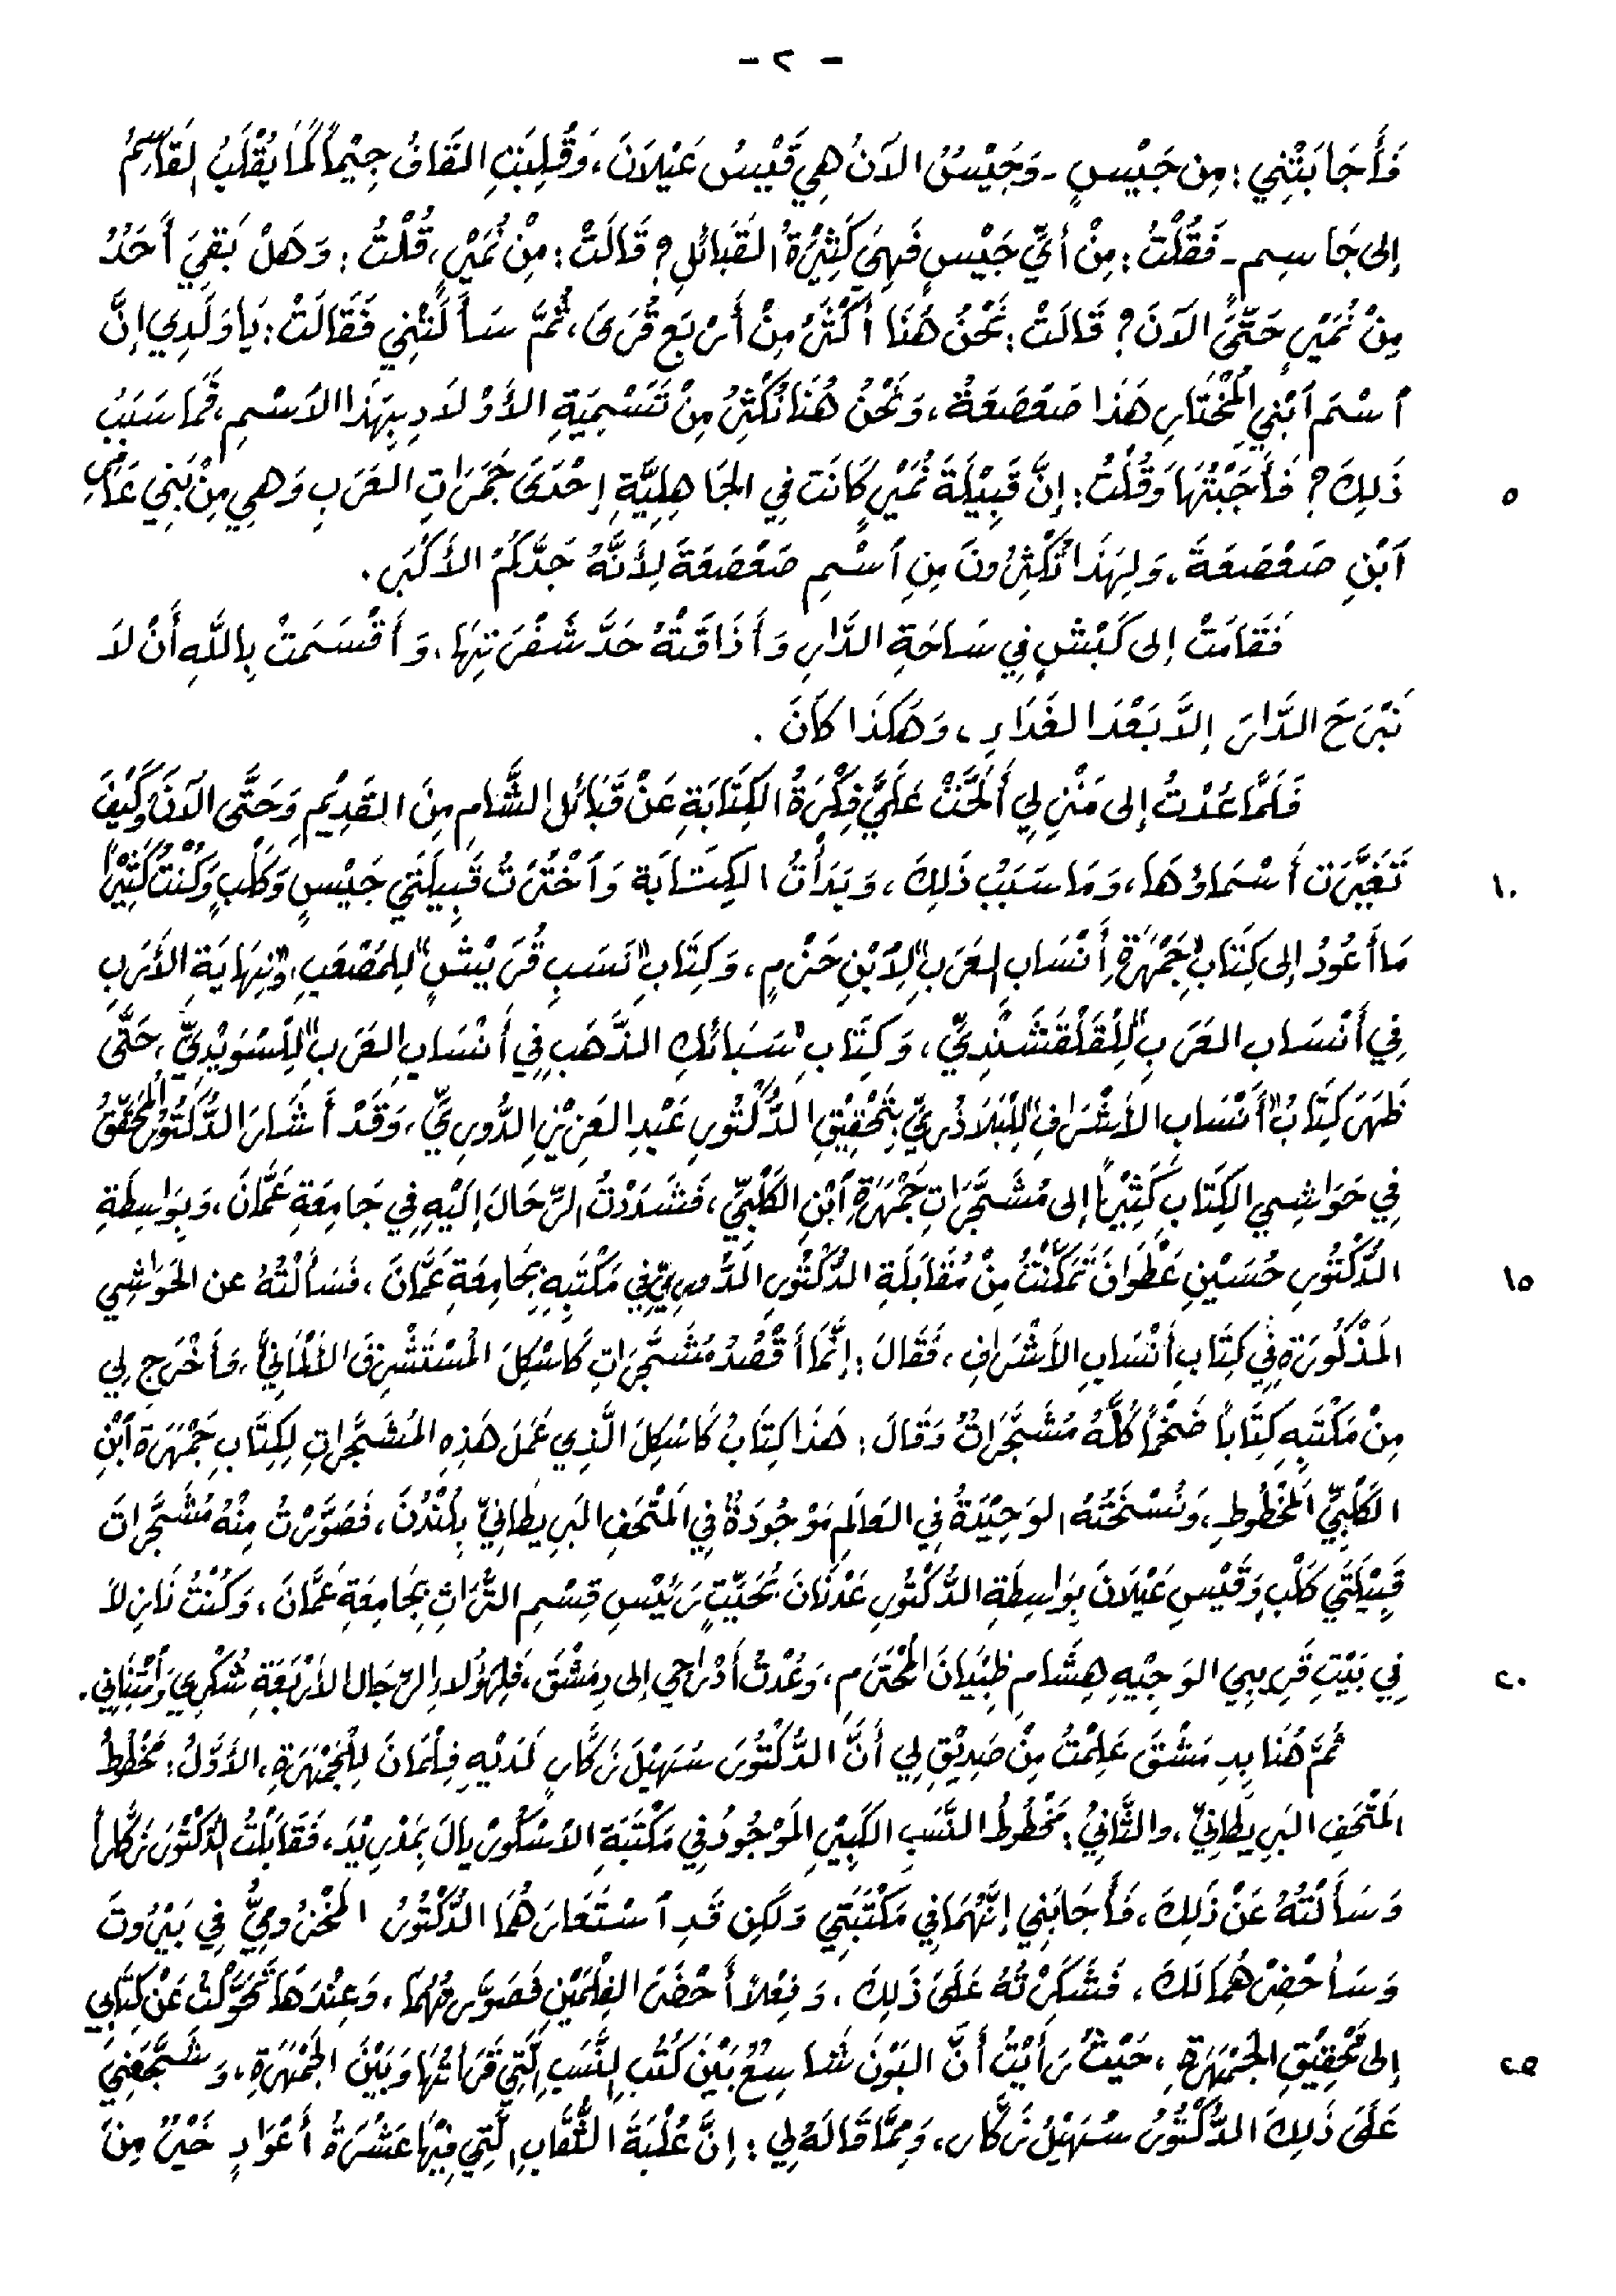 - ٢ -
فَأَجَابَتْنِي : مِن جَيْسٍ - وَجَيْسُ الآنَ هِي قَيْسُ عَيْلاَنَ ، وَقُلِبَتِ القَافُ جِيْماً كَمَا يُقْلَبُ القَاسِمُ
إلى جَاسِم - فَقُلْتُ : مِنْ أَيِّ جَيْسٍ فَهِيَ كَثِيْرَةُ القَبَائِلِ ؟ قَالَتْ : مِنْ نُمَيْرٍ ، قُلْتُ : وَهَلْ بَقِيَ أَحَدٌ
مِنْ نُمَيْرٍ حَتَّى الآنَ ؟ قَالَتْ : نَحْنُ هُنَا أَكْثَرُ مِنْ أَرْبَعِ قُرَىً ، ثُمَّ سَأَلَتْنِي فَقَالَتْ : يَا وَلَدِي إنَّ
ٱسْمَ ٱبْنِي المُخْتَارِ هَذَا صَعْصَعَةُ ، وَنَحْنُ هُنَا نُكْثِرُ مِنْ تَسْمِيَةِ الأَوْلاَدِ بِهَذَا الاَسْمِ ، فَمَا سَبَبُ
ذَلِكَ ؟ فَأَجَبْتُهَا وَقُلْتُ : إنَّ قَبِيْلَةَ نُمَيْرٍ كَانَت فِي الجَاهِلِيَّةِ إحْدَى جَمَرَاتِ العَرَبِ وَهِي مِنْ بَنِي عَامِرِ
٥
ٱبْنِ صَعْصَعَةَ ، وَلِهَذَا تُكْثِرُونَ مِنِ ٱسْمِ صَعْصَعَةَ لِأَنَّهُ جَدُّكُمُ الأَكْبَرُ .
فَقَامَتْ إلى كَبْشٍ فِي سَاحَةِ الدَّارِ وَأَذَاقَتْهُ حَدَّ شَفْرَتِهَا ، وَأَقْسَمَتْ بِاللَّهِ أَنْ لاَ
نَبْرَحَ الدَّارَ إلاَّ بَعْدَ الغَدَاءِ ، وَهَكَذَا كَانَ .
فَلَمَّا عُدْتُ إلى مَنْزِلِي أَلَحَّتْ عَلَيَّ فِكْرَةُ الكِتَابَةِ عَنْ قَبَائِلِ الشَّامِ مِنَ القَدِيْمِ وَحَتَّى الآنَ وَكَيْفَ
تَغَيَّرَت أَسْمَاؤُهَا ، وَمَا سَبَبُ ذَلِكَ ، وَبَدَأْتُ الكِتَابَة وَٱخْتَرْتُ قَبِيلَتَي جَيْسٍ وَكَلْبٍ وَكُنْتُ كَثِيْراً
١٠
مَا أَعُودُ إلى كِتَابِ "جَمْهَرَةِ أَنْسَابِ العَرَبِ" لِٱبْنِ حَزْمٍ ، وَكِتَابِ "نَسَبِ قُرَيْشٍ" لِلمُصْعَبِ ، وَ"نِهَايَةِ الأَرَبِ
فِي أَنْسَابِ العَرَبِ" لِلْقَلْقَشَنْدِيِّ ، وَكِتَابِ "سَبَائِكِ الذَّهَبِ فِي أَنْسَابِ العَرَبِ" لِلسُّوَيْدِيِّ ، حَتَّى
ظَهَرَ كِتَابُ "أَنْسَابِ الأَشْرَافِ" لِلْبَلَاذُرِيِّ بِتَحْقِيْقِ الدُّكْتُورِ عَبْدِ العَزِيْزِ الدُّورِيِّ ، وَقَدْ أَشَارَ الدُّكْتُورُ المُحَقِّقُ
فِي حَوَاشِي الكِتَابِ كَثِيْراً إلى مُشَجَّرَاتِ جَمْهَرَةِ ٱبْنِ الكَلْبِيِّ ، فَشَدَدْتُ الرِّحَالَ إلَيْهِ فِي جَامِعَةِ عَمَّانَ ، وَبِوَاسِطَةِ
الدُّكْتُورِ حُسَيْنِ عَطْوَانَ تَمَكَّنْتُ مِنْ مُقَابَلَةِ الدُّكْتُورِ الدُّورِيِّ فِي مَكْتَبِهِ بِجَامِعَةِ عَمَّانَ ، فَسَأَلْتُهُ عن الحَوَاشِي
١٥
المَذْكُورَةِ فِي كِتَابِ أَنْسَابِ الأَشْرَافِ ، فَقَالَ : إنَّمَا أَقْصُدُ مُشَجَّرَاتِ كَاسْكِلَ المُسْتَشْرِقِ الأَلْمَانِيِّ ، فَأَخْرَجَ لِي
مِنْ مَكْتَبِهِ كِتَاباً ضَخْماً كُلُّهُ مُشَجَّرَاتٌ وَقَالَ : هَذَا كِتَابُ كَاسْكِلَ الَّذِي عَمَلَ هَذِهِ المُشَجَّرَاتِ لِكِتَابِ جَمْهَرَةِ ٱبْنِ
الكَلْبِيِّ المَخْطُوطِ ، وَنُسْخَتُهُ الوَحِيْدَةُ فِي العَالَمِ مَوْجُودَةٌ فِي المَتْحَفِ البَرِيطَانِيِّ بِلُنْدُنَ ، فَصَوَّرْتُ مِنْهُ مُشَجَّرَاتِ
قَبِيْلَتَي كَلْبٍ وَقَيْسِ عَيْلاَنَ بِوَاسِطَةِ الدُّكْتُورِ عَدْنَانَ بَخِيْتٍ رَئِيْسِ قِسْمِ التُّرَاثِ بِجَامِعَةِ عَمَّانَ ، وَكُنْتُ نَازِلاً
فِي بَيْتِ قَرِيبِي الوَجِيْهِ هِشَامِ ظِبْيَانَ المُحْتَرَمِ ، وَعُدْتُ أَدْرَاجِي إلى دِمَشْقَ ، فَلِهَؤُلاَءِ الرِّجَالِ الأَرْبَعَةِ شُكْرِي وَٱمْتِنَانِي .
٢٠
ثُمَّ هُنَا بِدِمَشْقَ عَلِمْتُ مِنْ صَدِيْقٍ لِي أَنَّ الدُّكْتُورَ سُهَيْلَ زَكَّارٍ لَدَيْهِ فِلْمَانِ لِلْجَمْهَرَةِ ، الأَوَّلُ : مَخْطُوطُ
المَتْحَفِ البَرِيطَانِيِّ ، والثَّانِيُ : مَخْطُوطُ النَّسَبِ الكَبِيْرِ المَوْجُودُ فِي مَكْتَبَةِ الاَسْكُورْيَالَ بِمَدْرِيْدَ ، فَقَابَلْتُ الدُّكْتُورَ زَكَّاراً
وَسَأَلْتُهُ عَنْ ذَلِكَ ، فَأَجَابَنِي إنَّهُمَا فِي مَكْتَبَتِي وَلَكِن قَدِ ٱسْتَعَارَهُمَا الدُّكْتُورُ المَخْزُومِيُّ فِي بَيْرُوتَ
وَسَأُحْضِرُهُمَا لَكَ ، فَشَكَرْتُهُ عَلَى ذَلِكَ ، وَفِعْلاً أَحْضَرَ الفِلْمَيْنِ فَصَوَّرْتُهُمَا ، وَعِنْدَهَا تَحَوَّلْتُ عَنْ كِتَابِي
إلى تَحْقِيْقِ الجَمْهَرَةِ ، حَيْثُ رَأَيْتُ أَنَّ البَوْنَ شَاسِعٌ بَيْنَ كُتُبِ النَّسَبِ الَّتِي قَرَأْتُهَا وَبَيْنَ الجَمْهَرَةِ ، وَشَجَّعَنِي
٢٥
عَلَى ذَلِكَ الدُّكْتُورُ سُهَيْلُ زَكَّار ، وَمِمَّا قَالَهُ لِي : إنَّ عُلْبَةَ الثُّقَابِ الَّتِي فِيْهَا عَشْرَةُ أَعْوَادٍ خَيْرٌ مِنْ